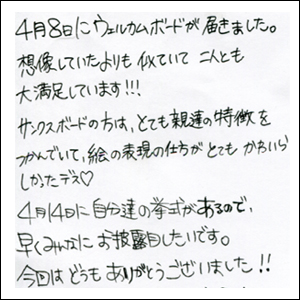 4月8日にウェルカムボードが届きました。
想像していたよりも似ていて二人とも
大満足しています!!!
サンクスボードの方は、とても親達の特徴を
つかんでいて、絵の表現の仕方がとてもかわいら
しかったデス♡
4月14日に自分達の挙式があるので、
早くみんなにお披露目したいです。
今回はどうもありがとうございました!!